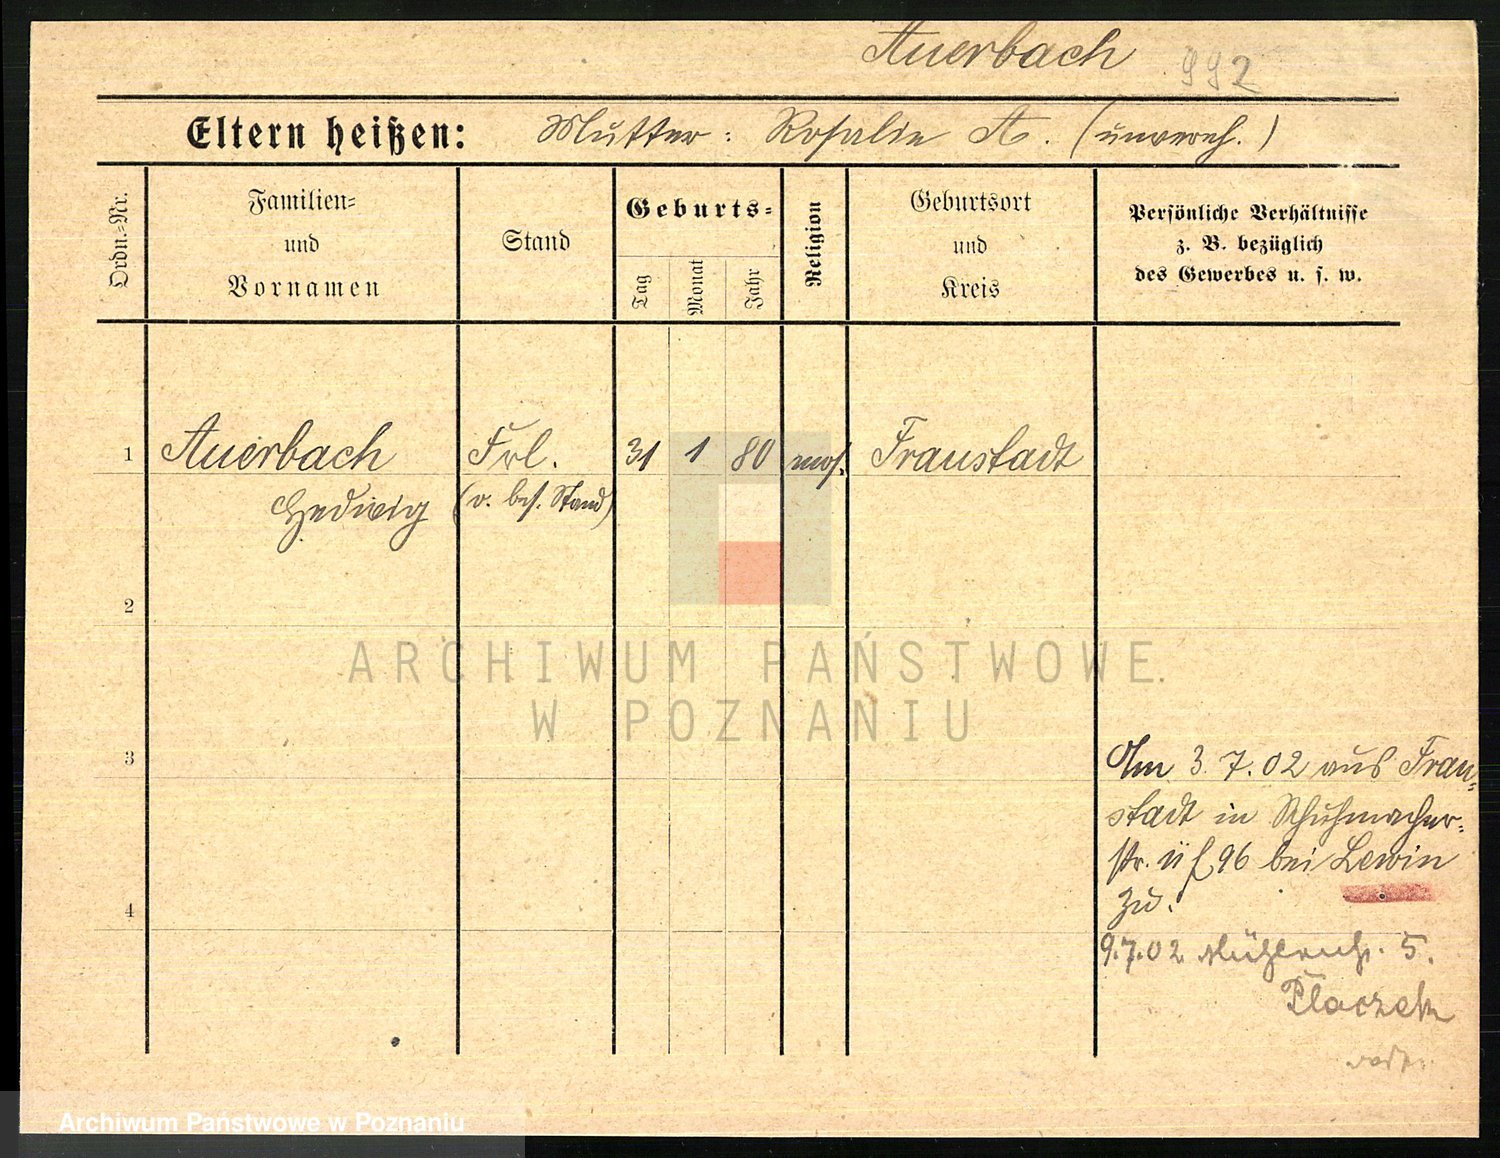 Auerbach 992
Eltern heißen: Mutter: Rosalie A. (unvereh.)
Ordn.=Nr.
Familien=
und
Vornamen
Stand
Geburts=
Tag
Monat
Jahr
Religion
Geburtsort
und
Kreis
Persönliche Verhältnisse
z. B. bezüglich
des Gewerbes u. s. w.
1 Auerbach Frl. 31 1 80 mos. Fraustadt
Hedwig (o. bes. Stand)
2
ARCHIWUM PAŃSTWOWE
W POZNANIU
3
Am 3.7.02 aus Frau=
stadt in Schuhmacher=
str. 96 bei Lewin
zu.
4
9.7.02 Mühlenstr. 5.
Placzek
Archiwum Państwowe w Poznaniu